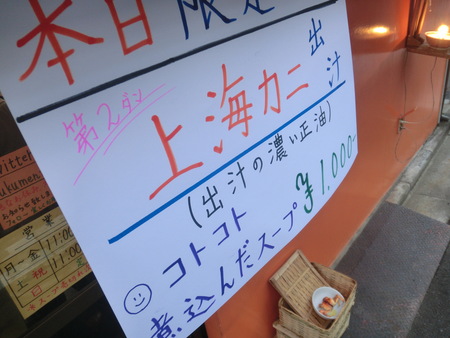 本日限定
第2ダン
上海カニ出汁
(出汁の濃い正油)
¥1,000-
コトコト
煮込んだスープ
営業
月〜金 11:00
土 祝 11:00
日